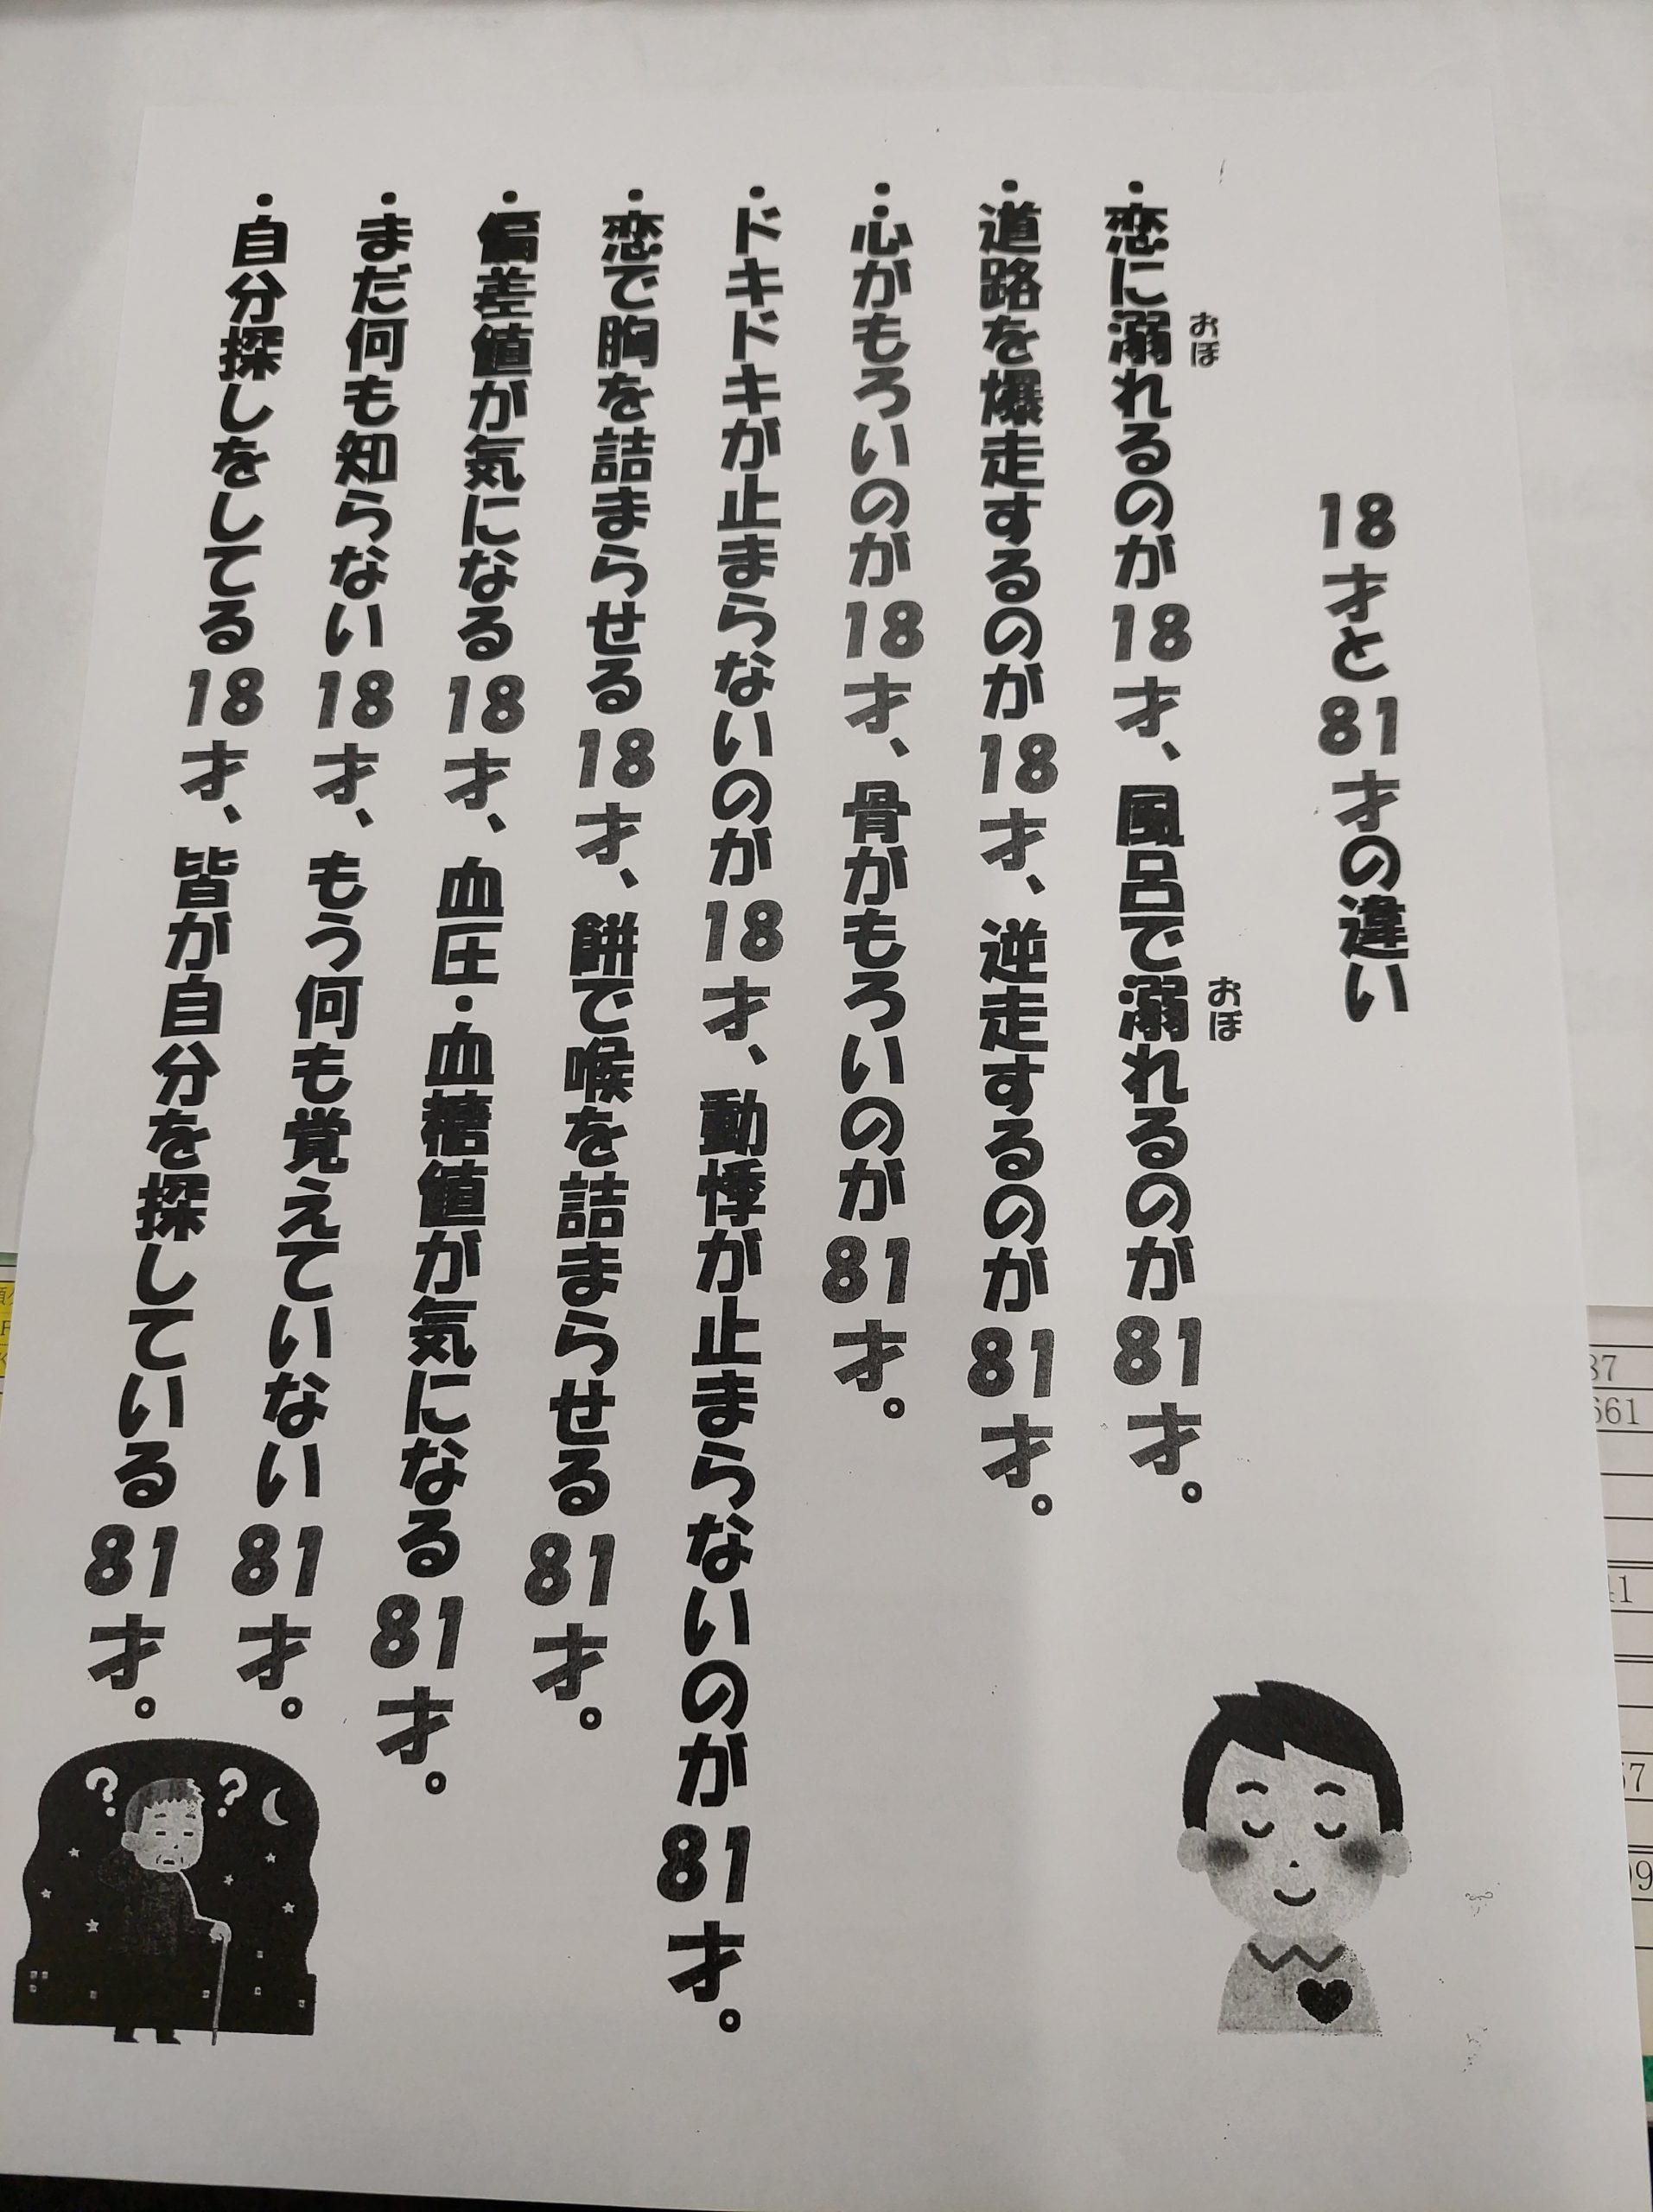 18才と81才の違い
・恋に溺れるのが18才、風呂で溺れるのが81才。
おぼ
おぼ
・道路を爆走するのが18才、逆走するのが81才。
・心がもろいのが18才、骨がもろいのが81才。
・ドキドキが止まらないのが18才、動悸が止まらないのが81才。
・恋で胸を詰まらせる18才、餅で喉を詰まらせる81才。
・偏差値が気になる18才、血圧・血糖値が気になる81才。
・まだ何も知らない18才、もう何も覚えていない81才。
・自分探しをしてる18才、皆が自分を探している81才。
? ?
661